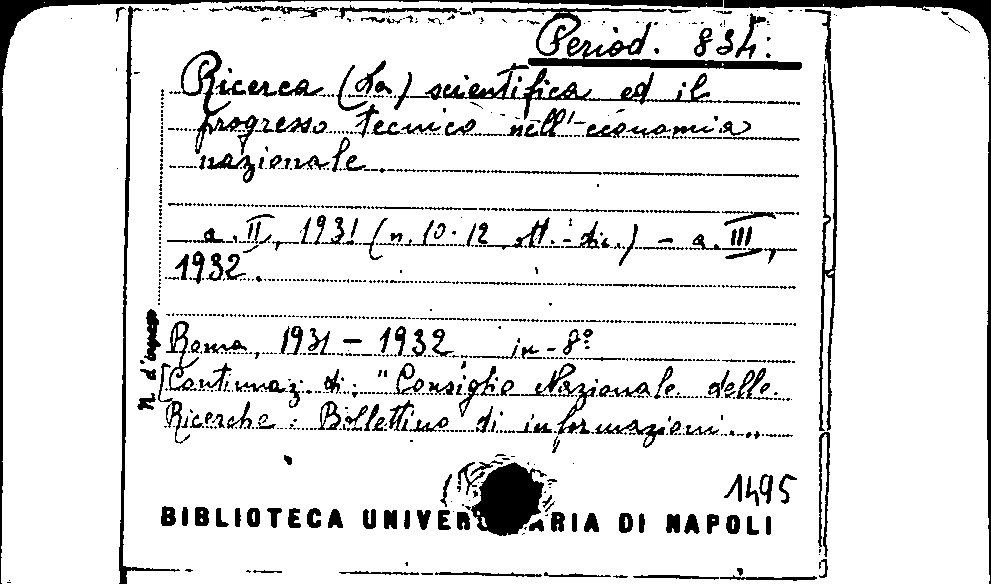 Period. 834:
Ricerca (La) scientifica ed il
progresso tecnico nell'economia
nazionale.
a. II, 1931 (n. 10-12 ott.-dic.) - a. III,
1932.
N. d'ingresso
Roma, 1931 - 1932 in-8º
[Continuaz. di: "Consiglio Nazionale delle
Ricerche: Bollettino di informazioni.„
1495
BIBLIOTECA DI NAPOLI